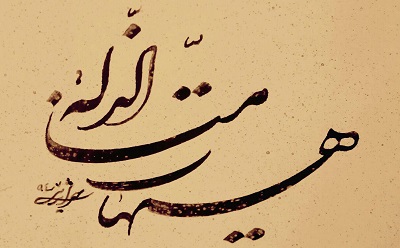 هیهات منّا الذّلة